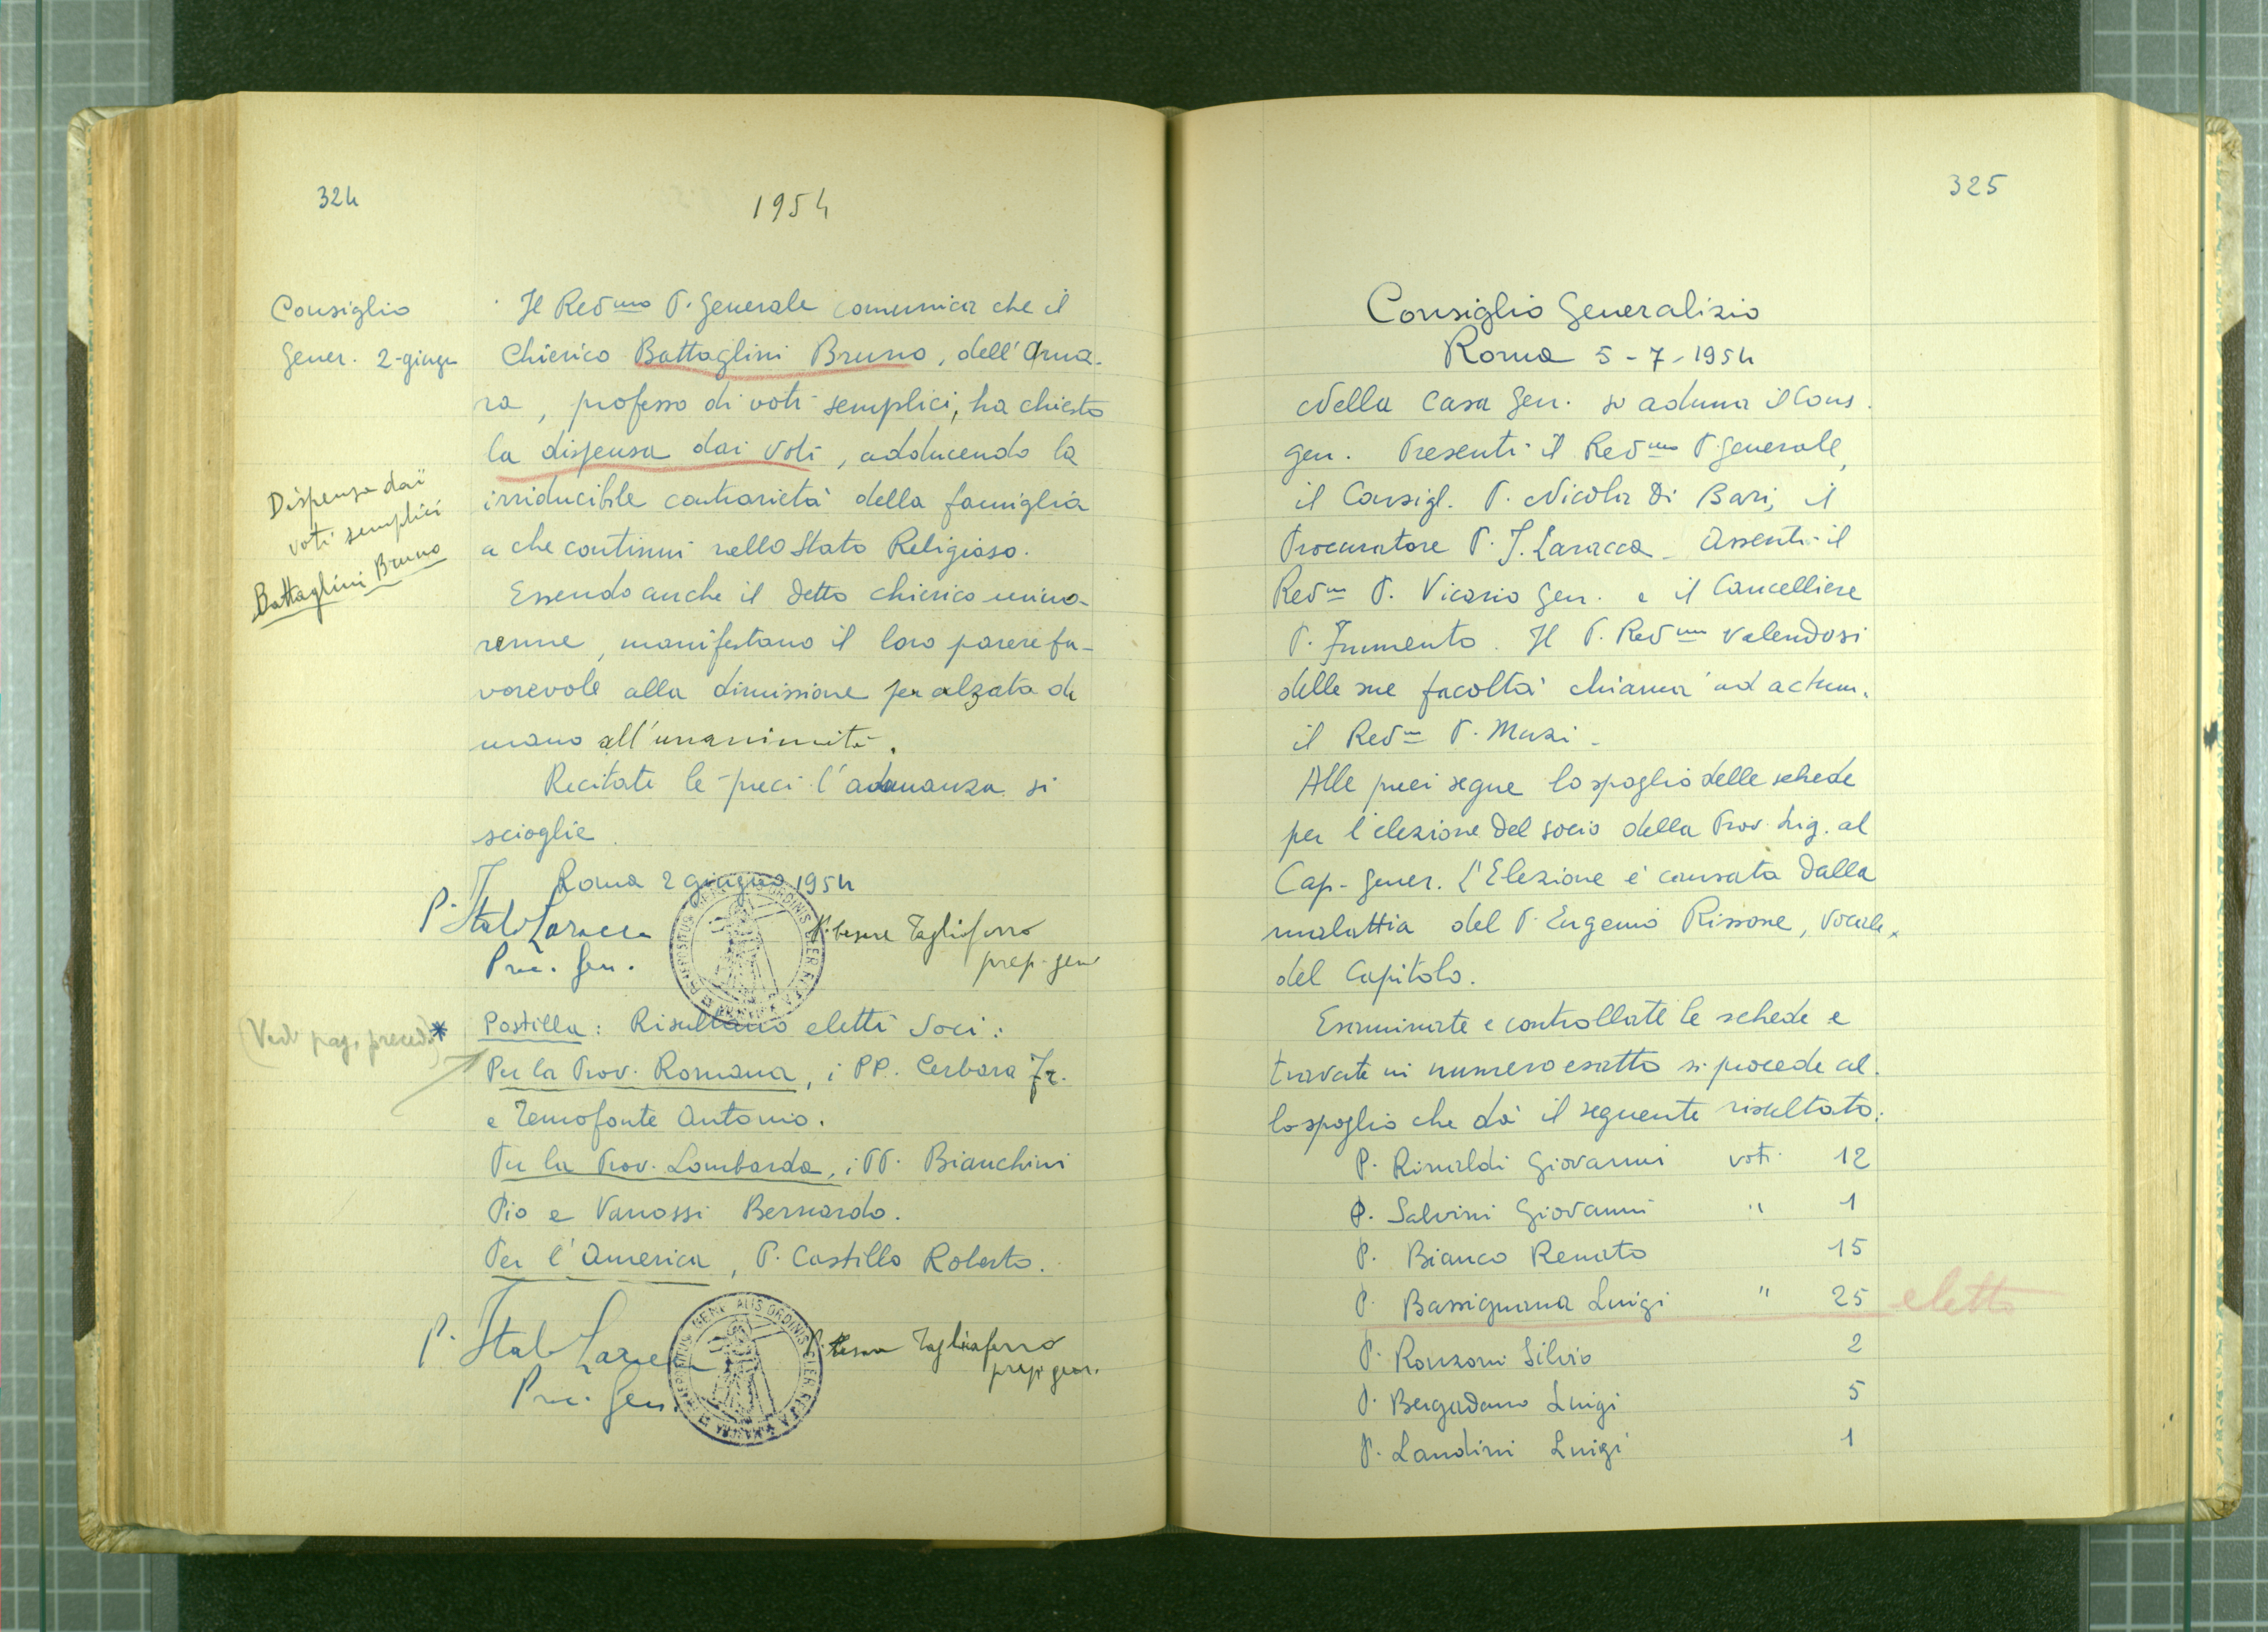 324
1954
Consiglio
Gener. 2-giugn
Dispensa dai
voti semplici
Battaglini Bruno
Il Rev.mo P. Generale comunica che il
Chierico Battaglini Bruno, dell'Ama-
ra, professo di voti semplici, ha chiesto
la dispensa dai voti, adducendo la
irriducibile contrarietà della famiglia
a che continui nello Stato Religioso.
Essendo anche il detto chierico mino-
renne, manifestano il loro parere fa-
vorevole alla dimissione per alzata di
mano all'unanimità.
Recitate le preci l'adunanza si
scioglie.
Roma 2 giugno 1954
P. Italo Laracca
Proc. Gen.
P. Cesare Tagliaferro
prep. gen
(Vedi pag. preced.) *
Postilla: Risultano eletti Soci:
Per la Prov. Romana, i PP. Cerbara Fr.
e Temofonte Antonio.
Per la Prov. Lombarda, i PP. Bianchini
Pio e Vanossi Bernardo.
Per l'America, P. Castillo Roberto.
P. Italo Laracca
Proc. Gen.
P. Cesare Tagliaferro
prep. gen.
325
Consiglio Generalizio
Roma 5-7-1954
Nella Casa Gen. si aduna il Cons.
gen. Presenti il Rev.mo P. Generale,
il Consigl. P. Nicola Di Bari, il
Procuratore P. I. Laracca. Assenti il
Rev.mo P. Vicario Gen. e il Cancelliere
P. Frumento. Il P. Rev.mo valendosi
delle sue facoltà chiama ad actum
il Rev.mo P. Muzi.
Alle preci segue lo spoglio delle schede
per l'elezione del socio della Prov. Lig. al
Cap. Gener. L'Elezione è causata dalla
malattia del P. Eugenio Rissone, Vocale
del Capitolo.
Esaminate e controllate le schede e
trovate in numero esatto si procede al-
lo spoglio che dà il seguente risultato:
P. Rinaldi Giovanni voti 12
P. Salvini Giovanni " 1
P. Bianco Renato 15
P. Bassignana Luigi " 25 eletto
P. Ronzoni Silvio 2
P. Bergadano Luigi 5
P. Landini Luigi 1